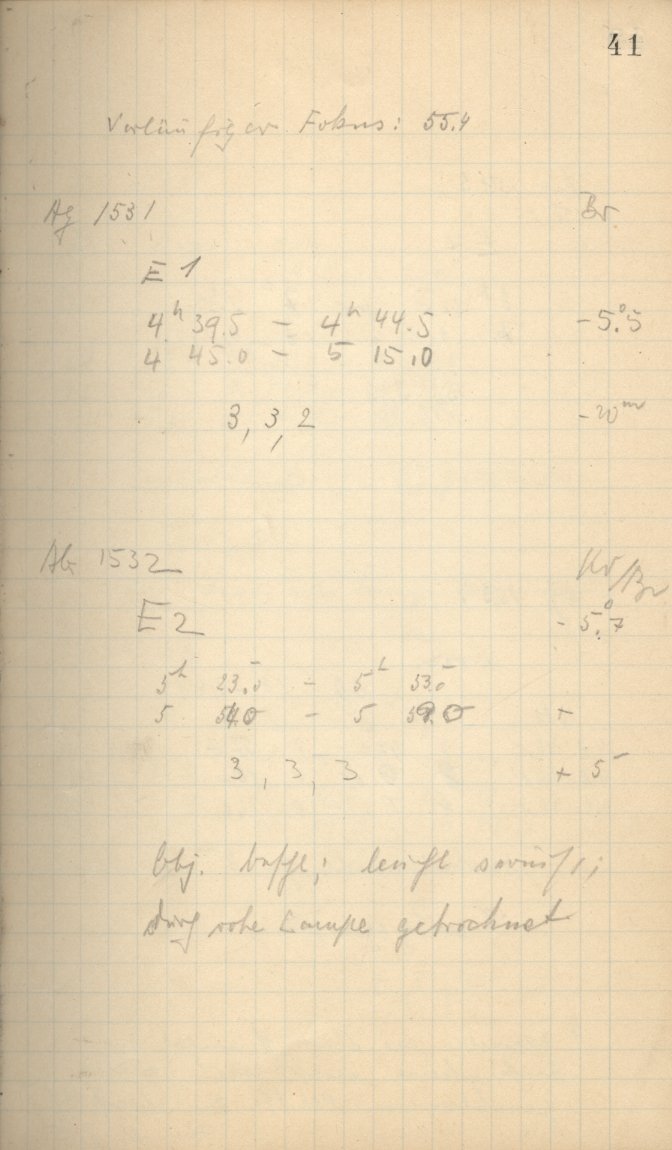 41
Vorläufiger Fokus: 55.4
Ag 1531 Br
E 1
4ʰ 39.5 – 4ʰ 44.5 -5.°5
4 45.0 – 5 15.0
3, 3, 2 -20ᵐ
1532 Kr/Br
E 2 - 5.°7
5ʰ 23.0 – 5ʰ 53.0
5 54.0 – 5 59.0 +
3, 3, 3 + 5
Obj. beschl;
durch rote Lampe getrocknet